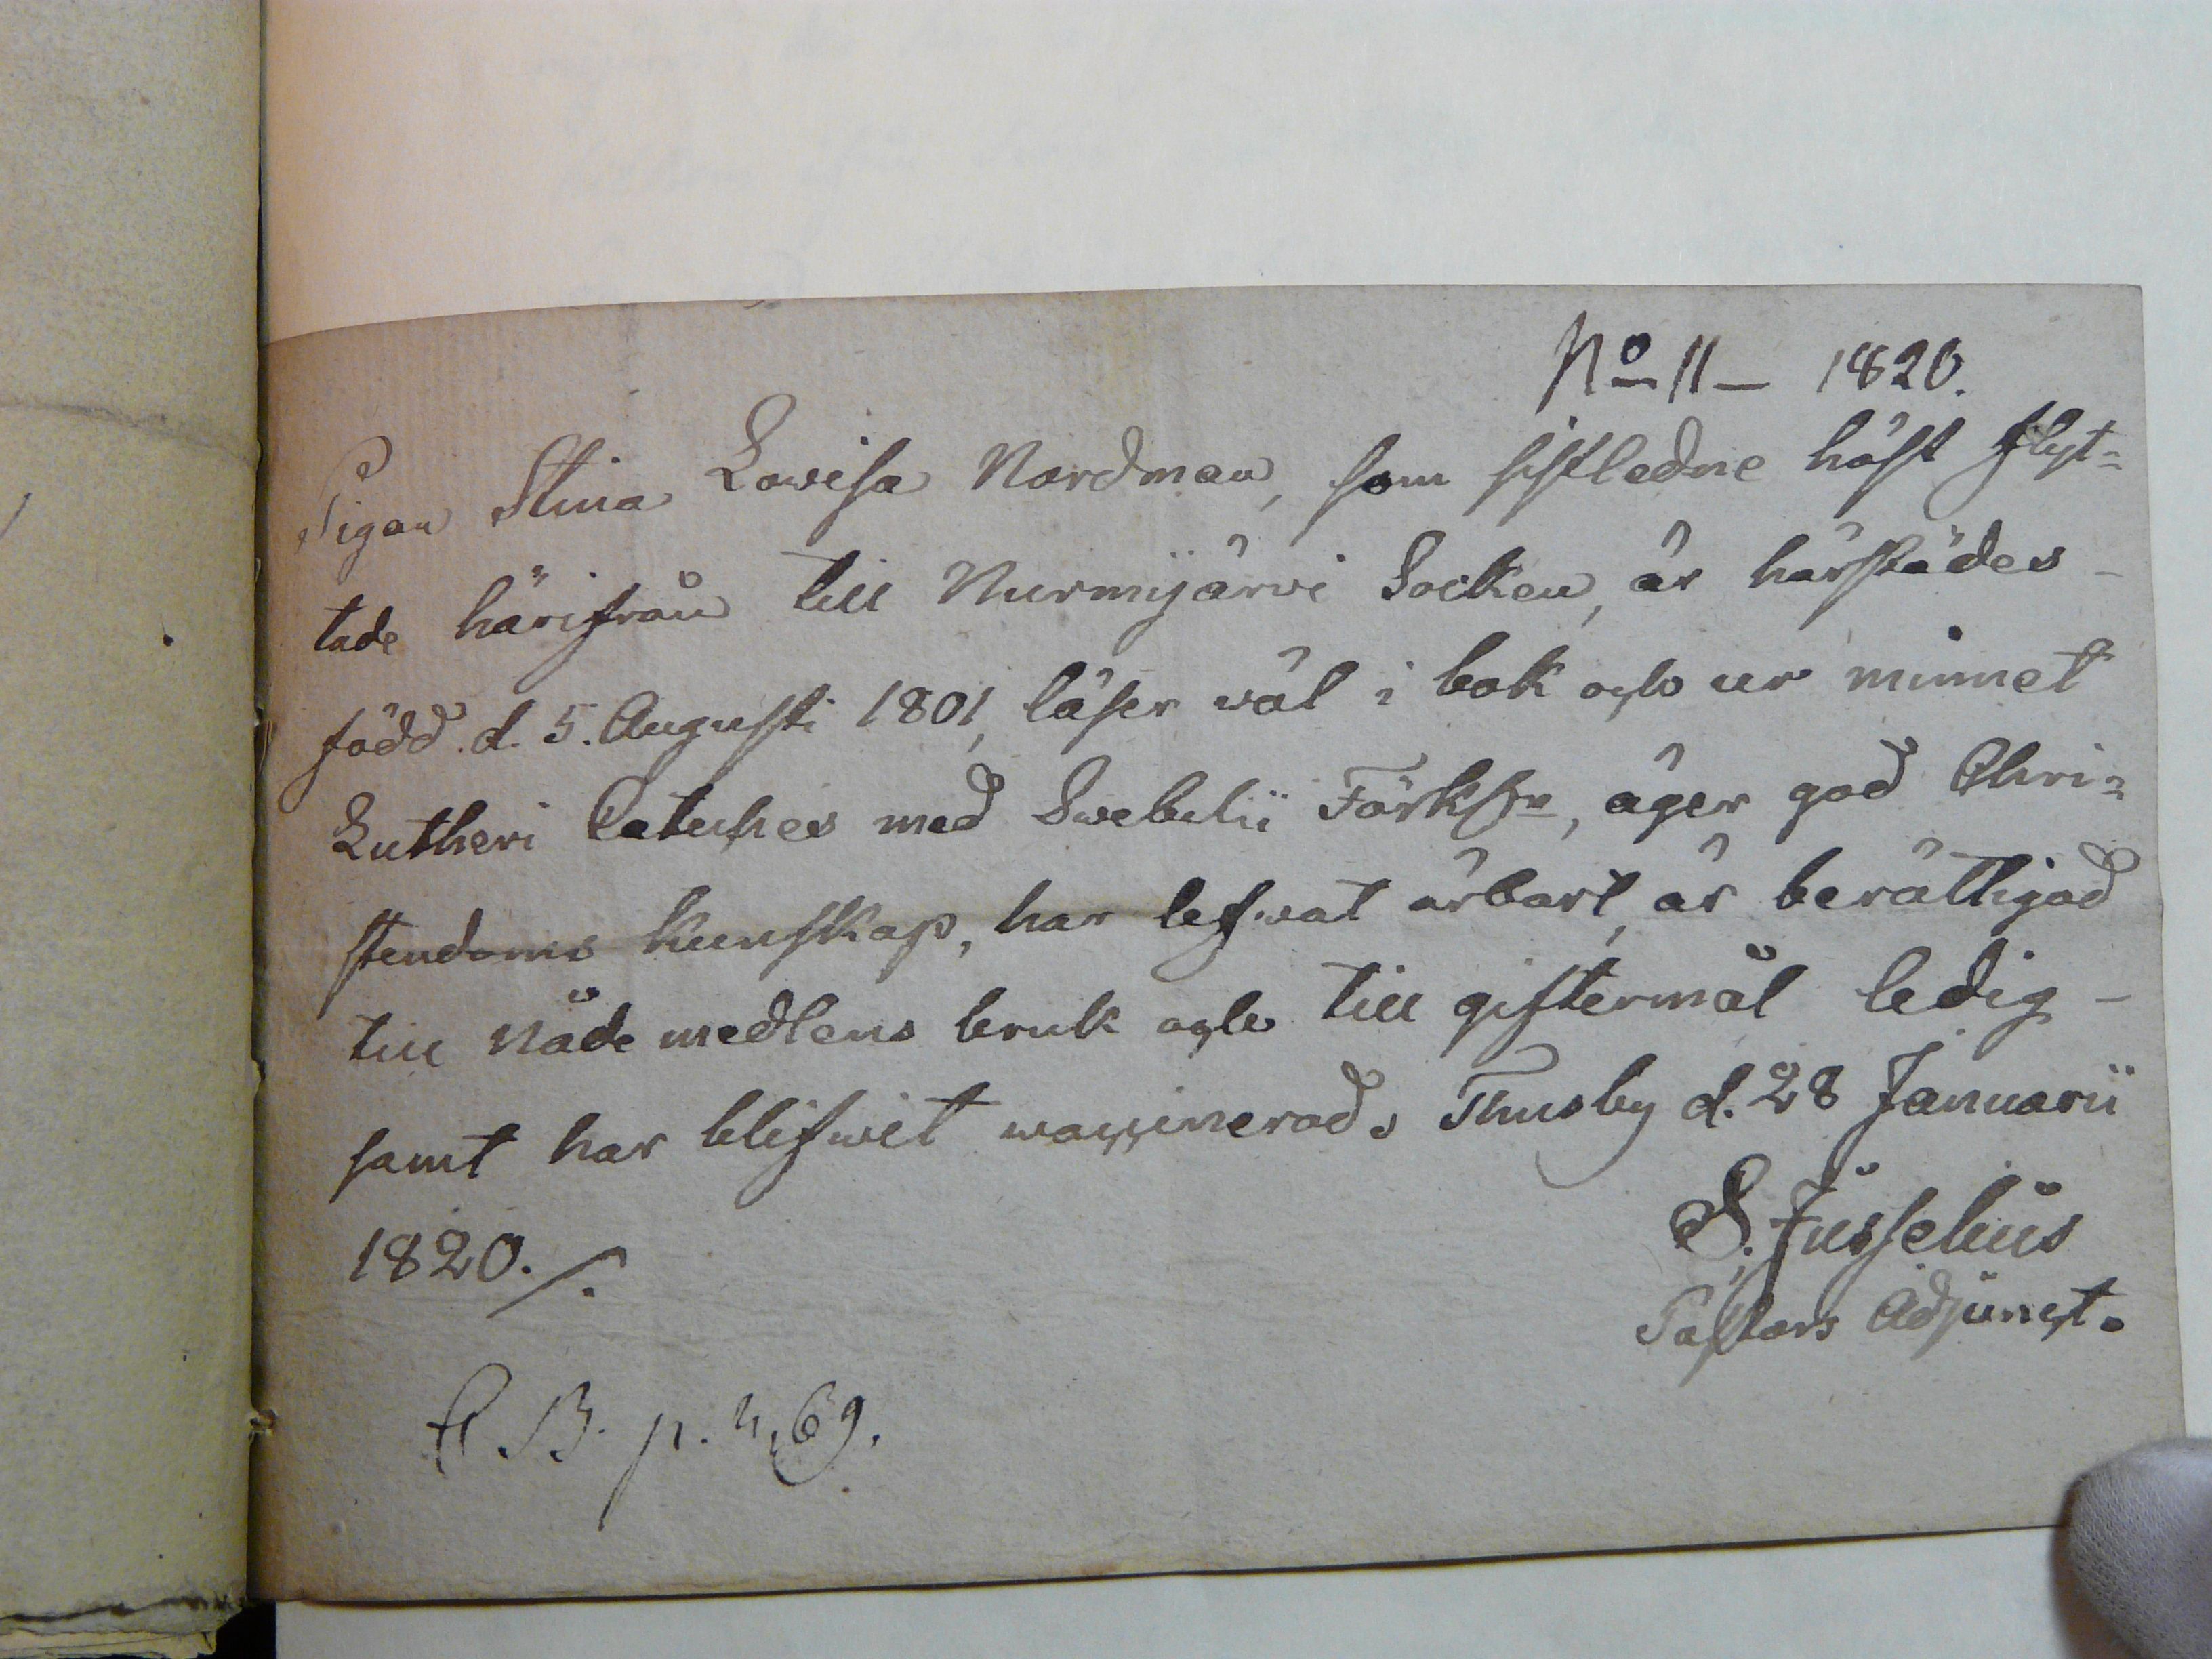 No 11 — 1820.
Pigan Stina Lovisa Nordman, som sistledne höst flyt=
tade härifrån till Nurmijärvi Socken, är härstädes –
född d. 5. Augusti 1801, läser wäl i bok och ur minnet
Lutheri Cateches med Swebelii Förkl:r, äger god Chri=
stendoms kunskap, har lefwat ärbart, är berättigad
till Nåde medlens bruk och till giftermål ledig –
samt har blifwit waccinerad. Thusby d. 28 Januarii
1820./.
S. Jusselius
Pastors Adjunct.
C B. p. 469.